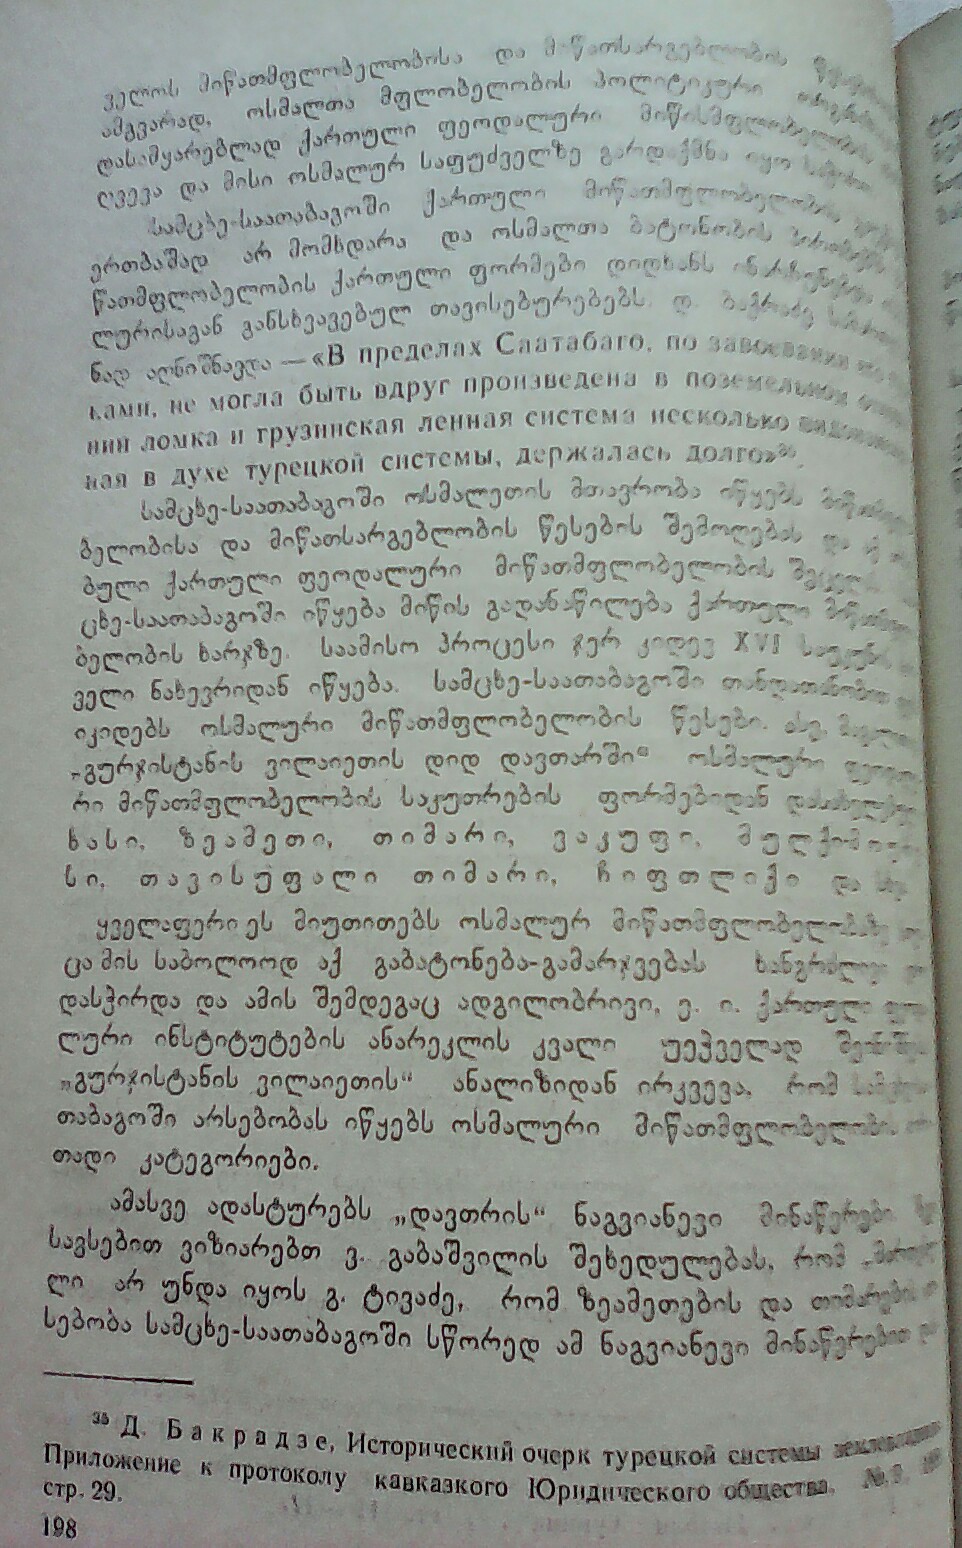 ველოს მიწათმფლობელობისა და მიწათსარგებლობის
ამგვარად, ოსმალთა მფლობელობის პოლიტიკური
დასამყარებლად ქართული ფეოდალური მიწისმფლობელობის
ღვევა და მისი ოსმალურ საფუძველზე გარდაქმნა იყო
სამცხე-საათაბაგოში ქართული მიწათმფლობელობის
ერთბაშად არ მომხდარა და ოსმალთა ბატონობის პირობებში
წათმფლობელობის ქართული ფორმები დიდხანს ინარჩუნებდა
ლურისაგან განსხვავებულ თავისებურებებს. დ. ბაქრაძე
ნად აღნიშნავდა — «В пределах Саатабаго, по завоевании
ками, не могла быть вдруг произведена в поземельном
нии ломка и грузинская ленная система несколько
ная в духе турецкой системы, держалась долго»³⁵.
სამცხე-საათაბაგოში ოსმალეთის მთავრობა იწყებს
ბელობისა და მიწათსარგებლობის წესების შემოღებას და
ბული ქართული ფეოდალური მიწათმფლობელობის
ცხე-საათაბაგოში იწყება მიწის გადანაწილება ქართული
ბელობის ხარჯზე. საამისო პროცესი ჯერ კიდევ XVI
ველი ნახევრიდან იწყება. სამცხე-საათაბაგოში თანდათანობით
იკიდებს ოსმალური მიწათმფლობელობის წესები. ასე,
„გურჯისტანის ვილაიეთის დიდ დავთარში“ ოსმალური
რი მიწათმფლობელობის საკუთრების ფორმებიდან
ხასი, ზეამეთი, თიმარი, ვაკუფი,
სი, თავისუფალი თიმარი, ჩიფთლიქი და
ყველაფერი ეს მიუთითებს ოსმალურ მიწათმფლობელობაზე
ცა მის საბოლოოდ აქ გაბატონება-გამარჯვებას ხანგრძლივი
დასჭირდა და ამის შემდეგაც ადგილობრივი, ე. ი. ქართული
ლური ინსტიტუტების ანარეკლის კვალი უეჭველად
„გურჯისტანის ვილაიეთის“ ანალიზიდან ირკვევა, რომ
თაბაგოში არსებობას იწყებს ოსმალური მიწათმფლობელობის
თადი კატეგორიები.
ამასვე ადასტურებს „დავთრის“ ნაგვიანევი მინაწერები
სავსებით ვიზიარებთ ვ. გაბაშვილის შეხედულებას, რომ
ლი არ უნდა იყოს გ. ტივაძე, რომ ზეამეთების და თიმარების
სებობა სამცხე-საათაბაგოში სწორედ ამ ნაგვიანევი მინაწერებით
³⁵ Д. Бакрадзе, Исторический очерк турецкой системы землевладения
Приложение к протоколу кавказкого Юридического общества,
стр. 29.
198